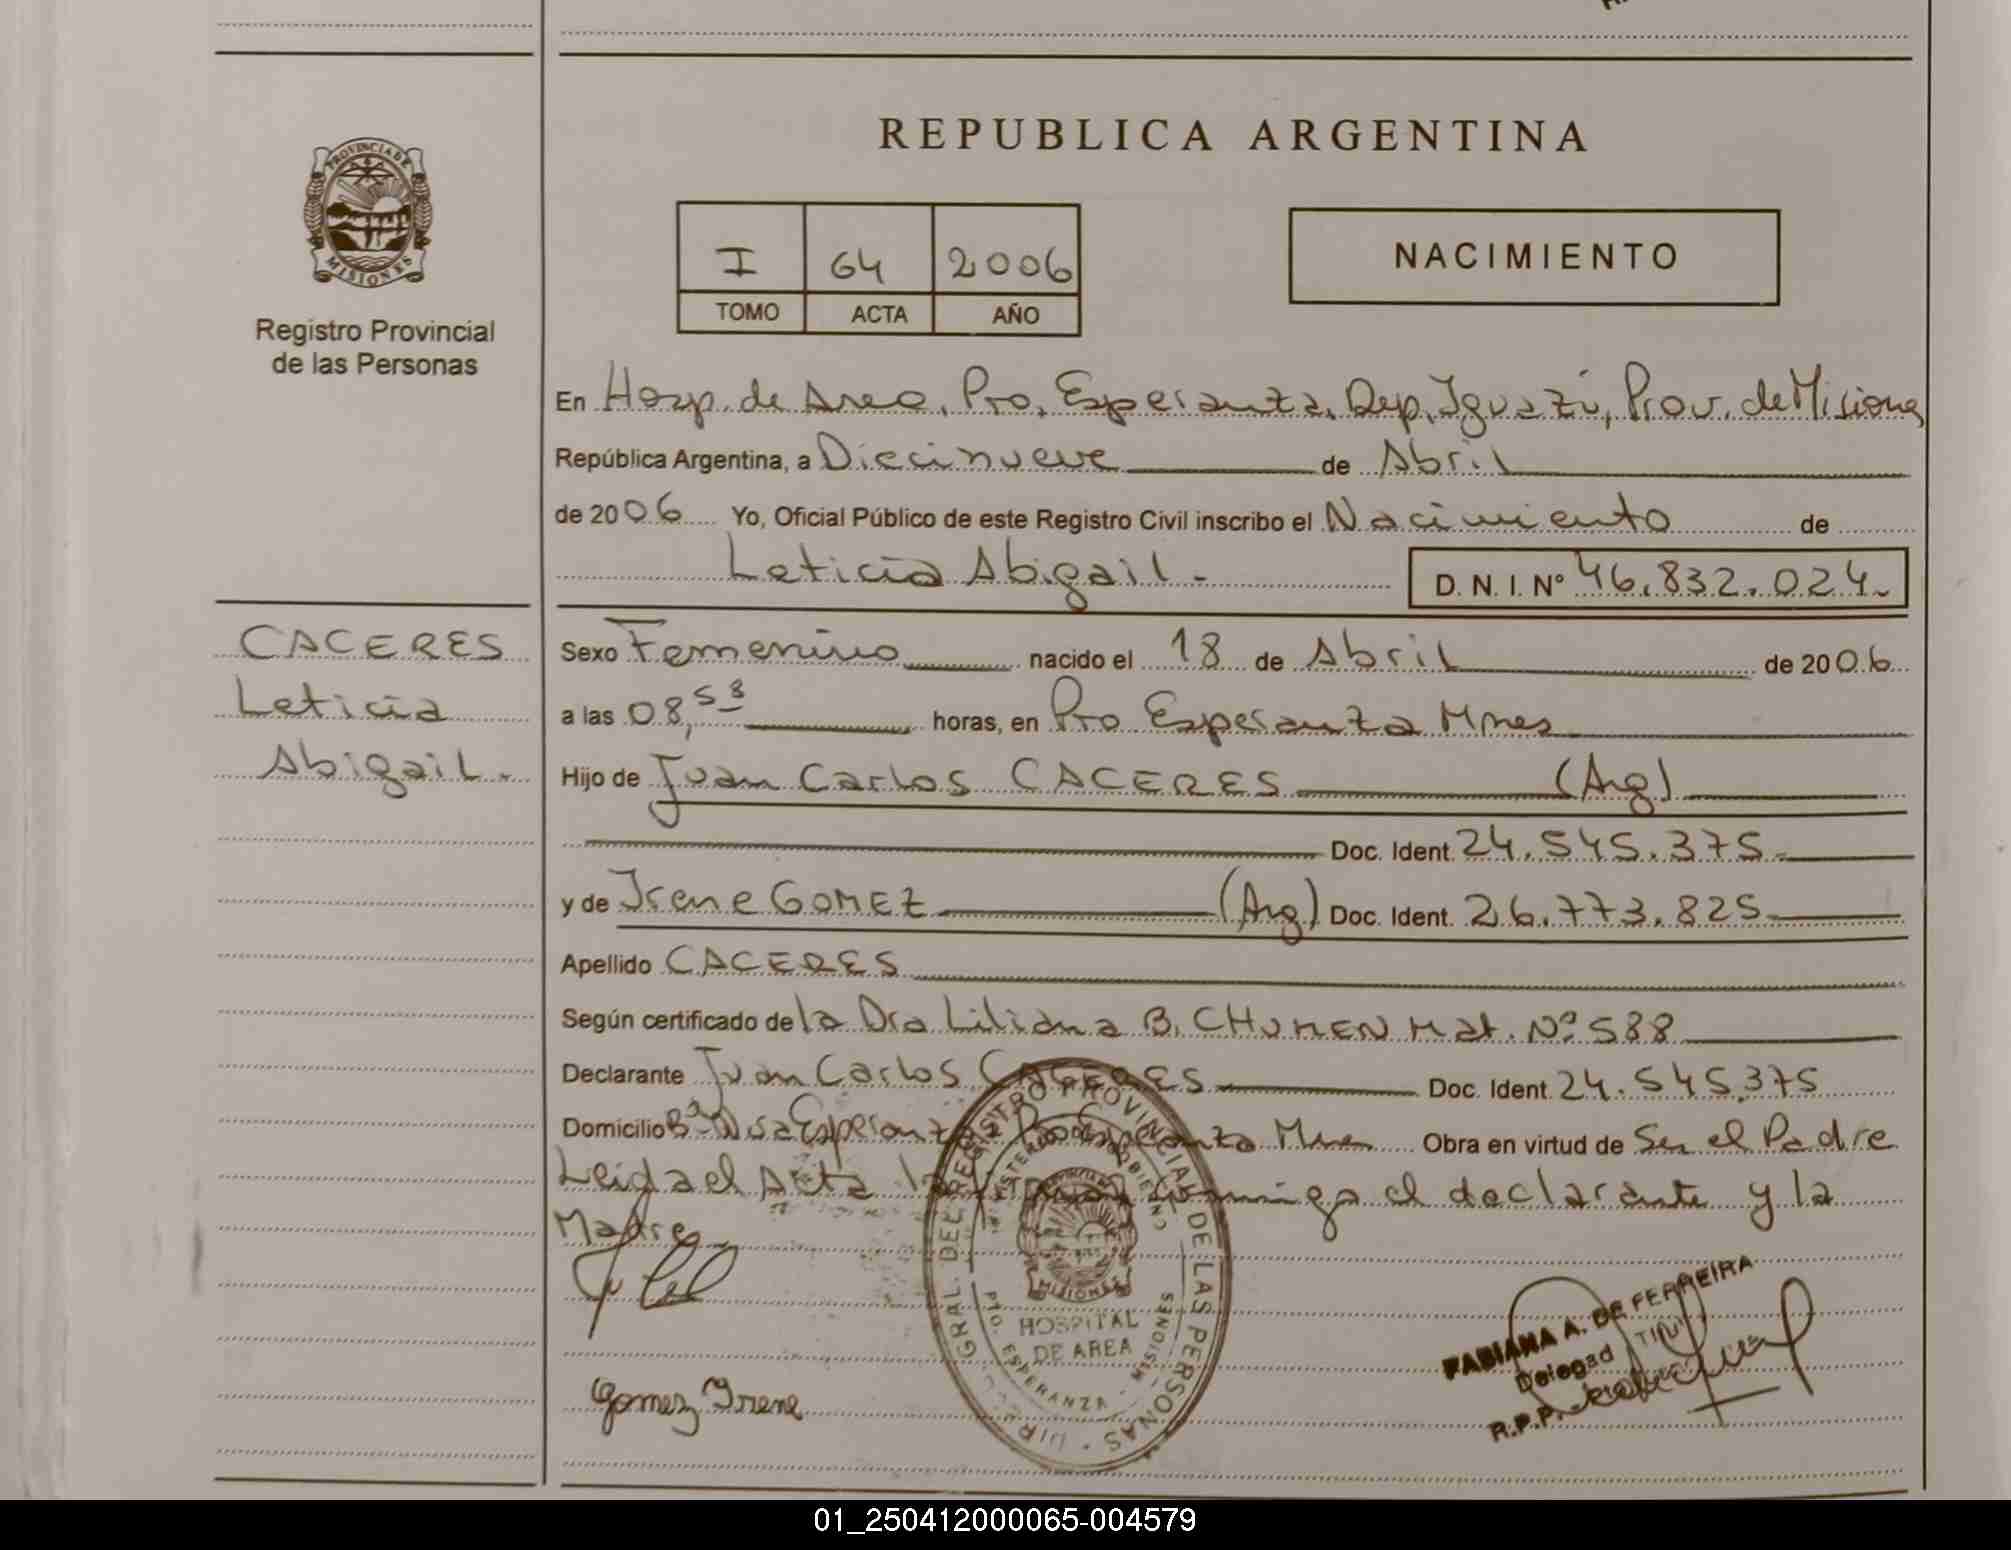 REPUBLICA ARGENTINA
PROVINCIA DE
MISIONES
Registro Provincial
de las Personas
I 64 2006
TOMO ACTA AÑO
NACIMIENTO
En Hosp. de Area, Pto. Esperanza, Dep. Iguazú, Prov. de Misiones
República Argentina, a Diecinueve de Abril
de 2006 Yo, Oficial Público de este Registro Civil inscribo el Nacimiento de
Leticia Abigail.- D. N. I. Nº 46.832.024.
CACERES
Leticia
Abigail.-
Sexo Femenino nacido el 18 de Abril de 2006
a las 08,53 horas, en Pto Esperanza Mnes
Hijo de Juan Carlos CACERES (Arg)
Doc. Ident. 24.545.375.
y de Irene GOMEZ (Arg) Doc. Ident. 26.773.825
Apellido CACERES
Según certificado de la Dra Liliana B. CHUMEN Mat. Nº 588
Declarante Juan Carlos CACERES Doc. Ident. 24.545.375
Domicilio Bº Esperanza Mnes Obra en virtud de Ser el Padre
Leida el Acta la conmigo el declarante y la
Madre
Gomez Irene
DIR. GRAL. DEL REGISTRO PROVINCIAL DE LAS PERSONAS
MISIONES
HOSPITAL
DE AREA
PTO. ESPERANZA - MISIONES
FABIANA A. DE FERREIRA
R.P.P.
01_250412000065-004579